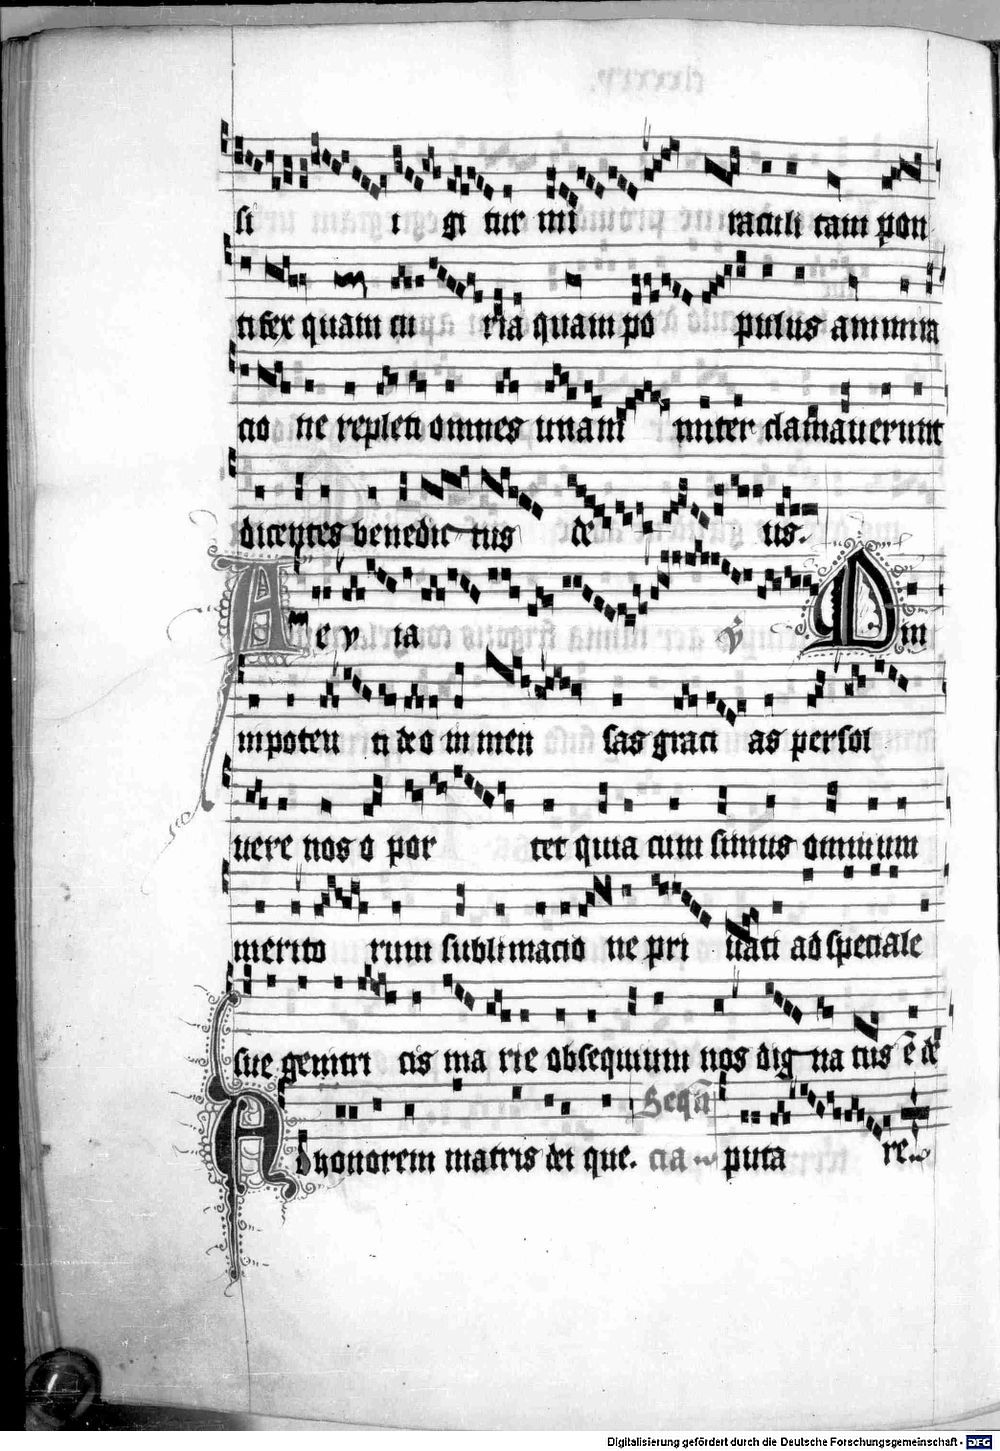 si i gi tur mi raculi tam pon
tifex quam cu ria quam po pulus ammira
cio ne repleti omnes unani miter clamauerunt
dicentes benedic tus de us.
A e v ia ℣ Om
nipoten ti deo in men sas graci as persol
uere nos o por tet quia cum simus omnium
merito rum sublimacio ne pri uati ad speciale
sue genitri cis ma rie obsequium nos dig na tus ē de
puta re.
Seqn̄
cia
Ad honorem matris dei que.
Digitalisierung gefördert durch die Deutsche Forschungsgemeinschaft - DFG